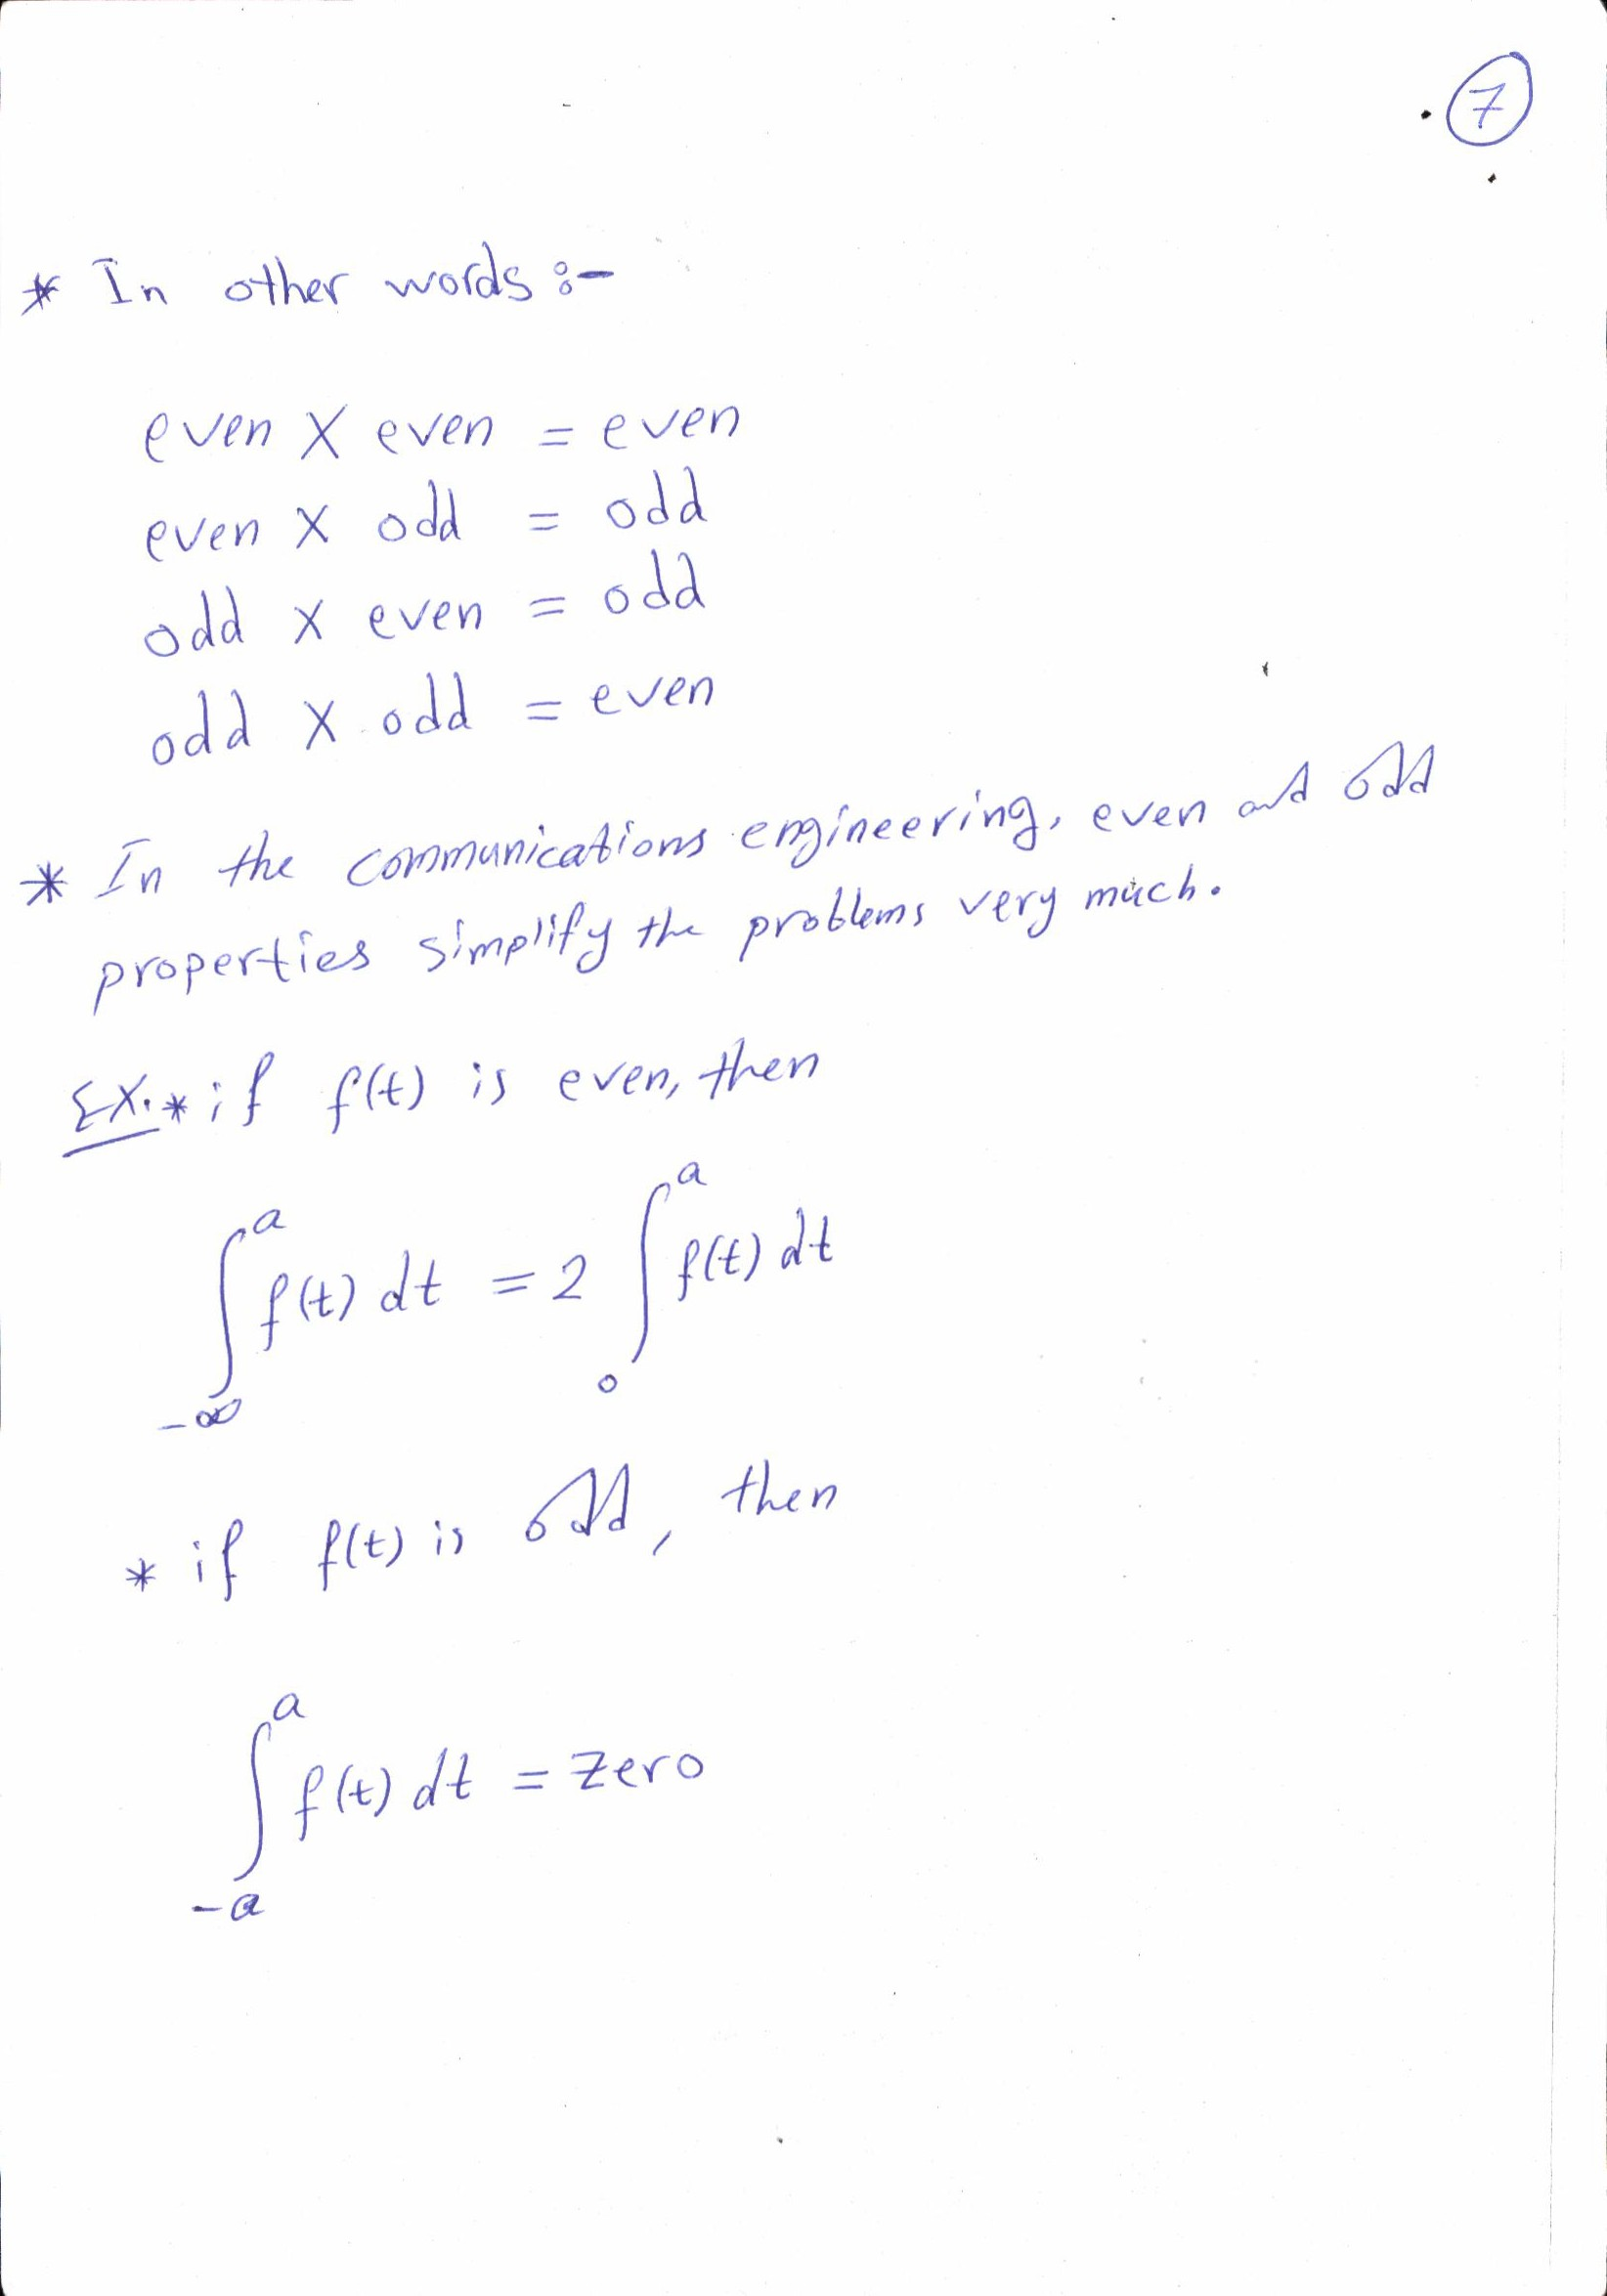 7
* In other words :-
even X even = even
even X odd = odd
odd X even = odd
odd X odd = even
* In the communications engineering, even and odd
properties simplify the problems very much.
EX. * if f(t) is even, then
∫_{-∞}^{a} f(t) dt = 2 ∫_{0}^{a} f(t) dt
* if f(t) is odd, then
∫_{-a}^{a} f(t) dt = Zero